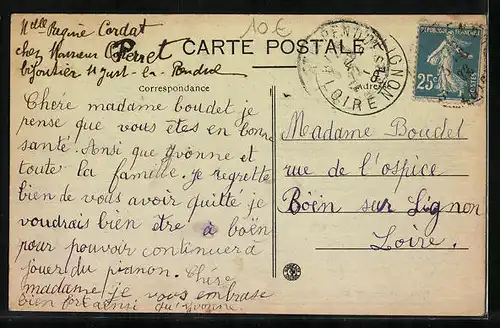 Mdelle Regine Cordat
10€
chez Monsieur Perret
bijoutier St Just-la-Pendue
CARTE POSTALE
Correspondance
Adresse
LOIRE
REPUBLIQUE FRANÇAISE
25c
POSTES
Chéré madame boudet je
pense que vous êtes en bonne
santé. Ansi que Yvonne et
toute la famille. je regrette
bien de vous avoir quitté je
voudrais bien être à boën
pour pouvoir continuer à
jouer du pianon. Chére
madame je vous embrase
bien fort ainsi qu'Yvonne.
Madame Boudet
rue de l'ospice
Böën sur Lignon
Loire.